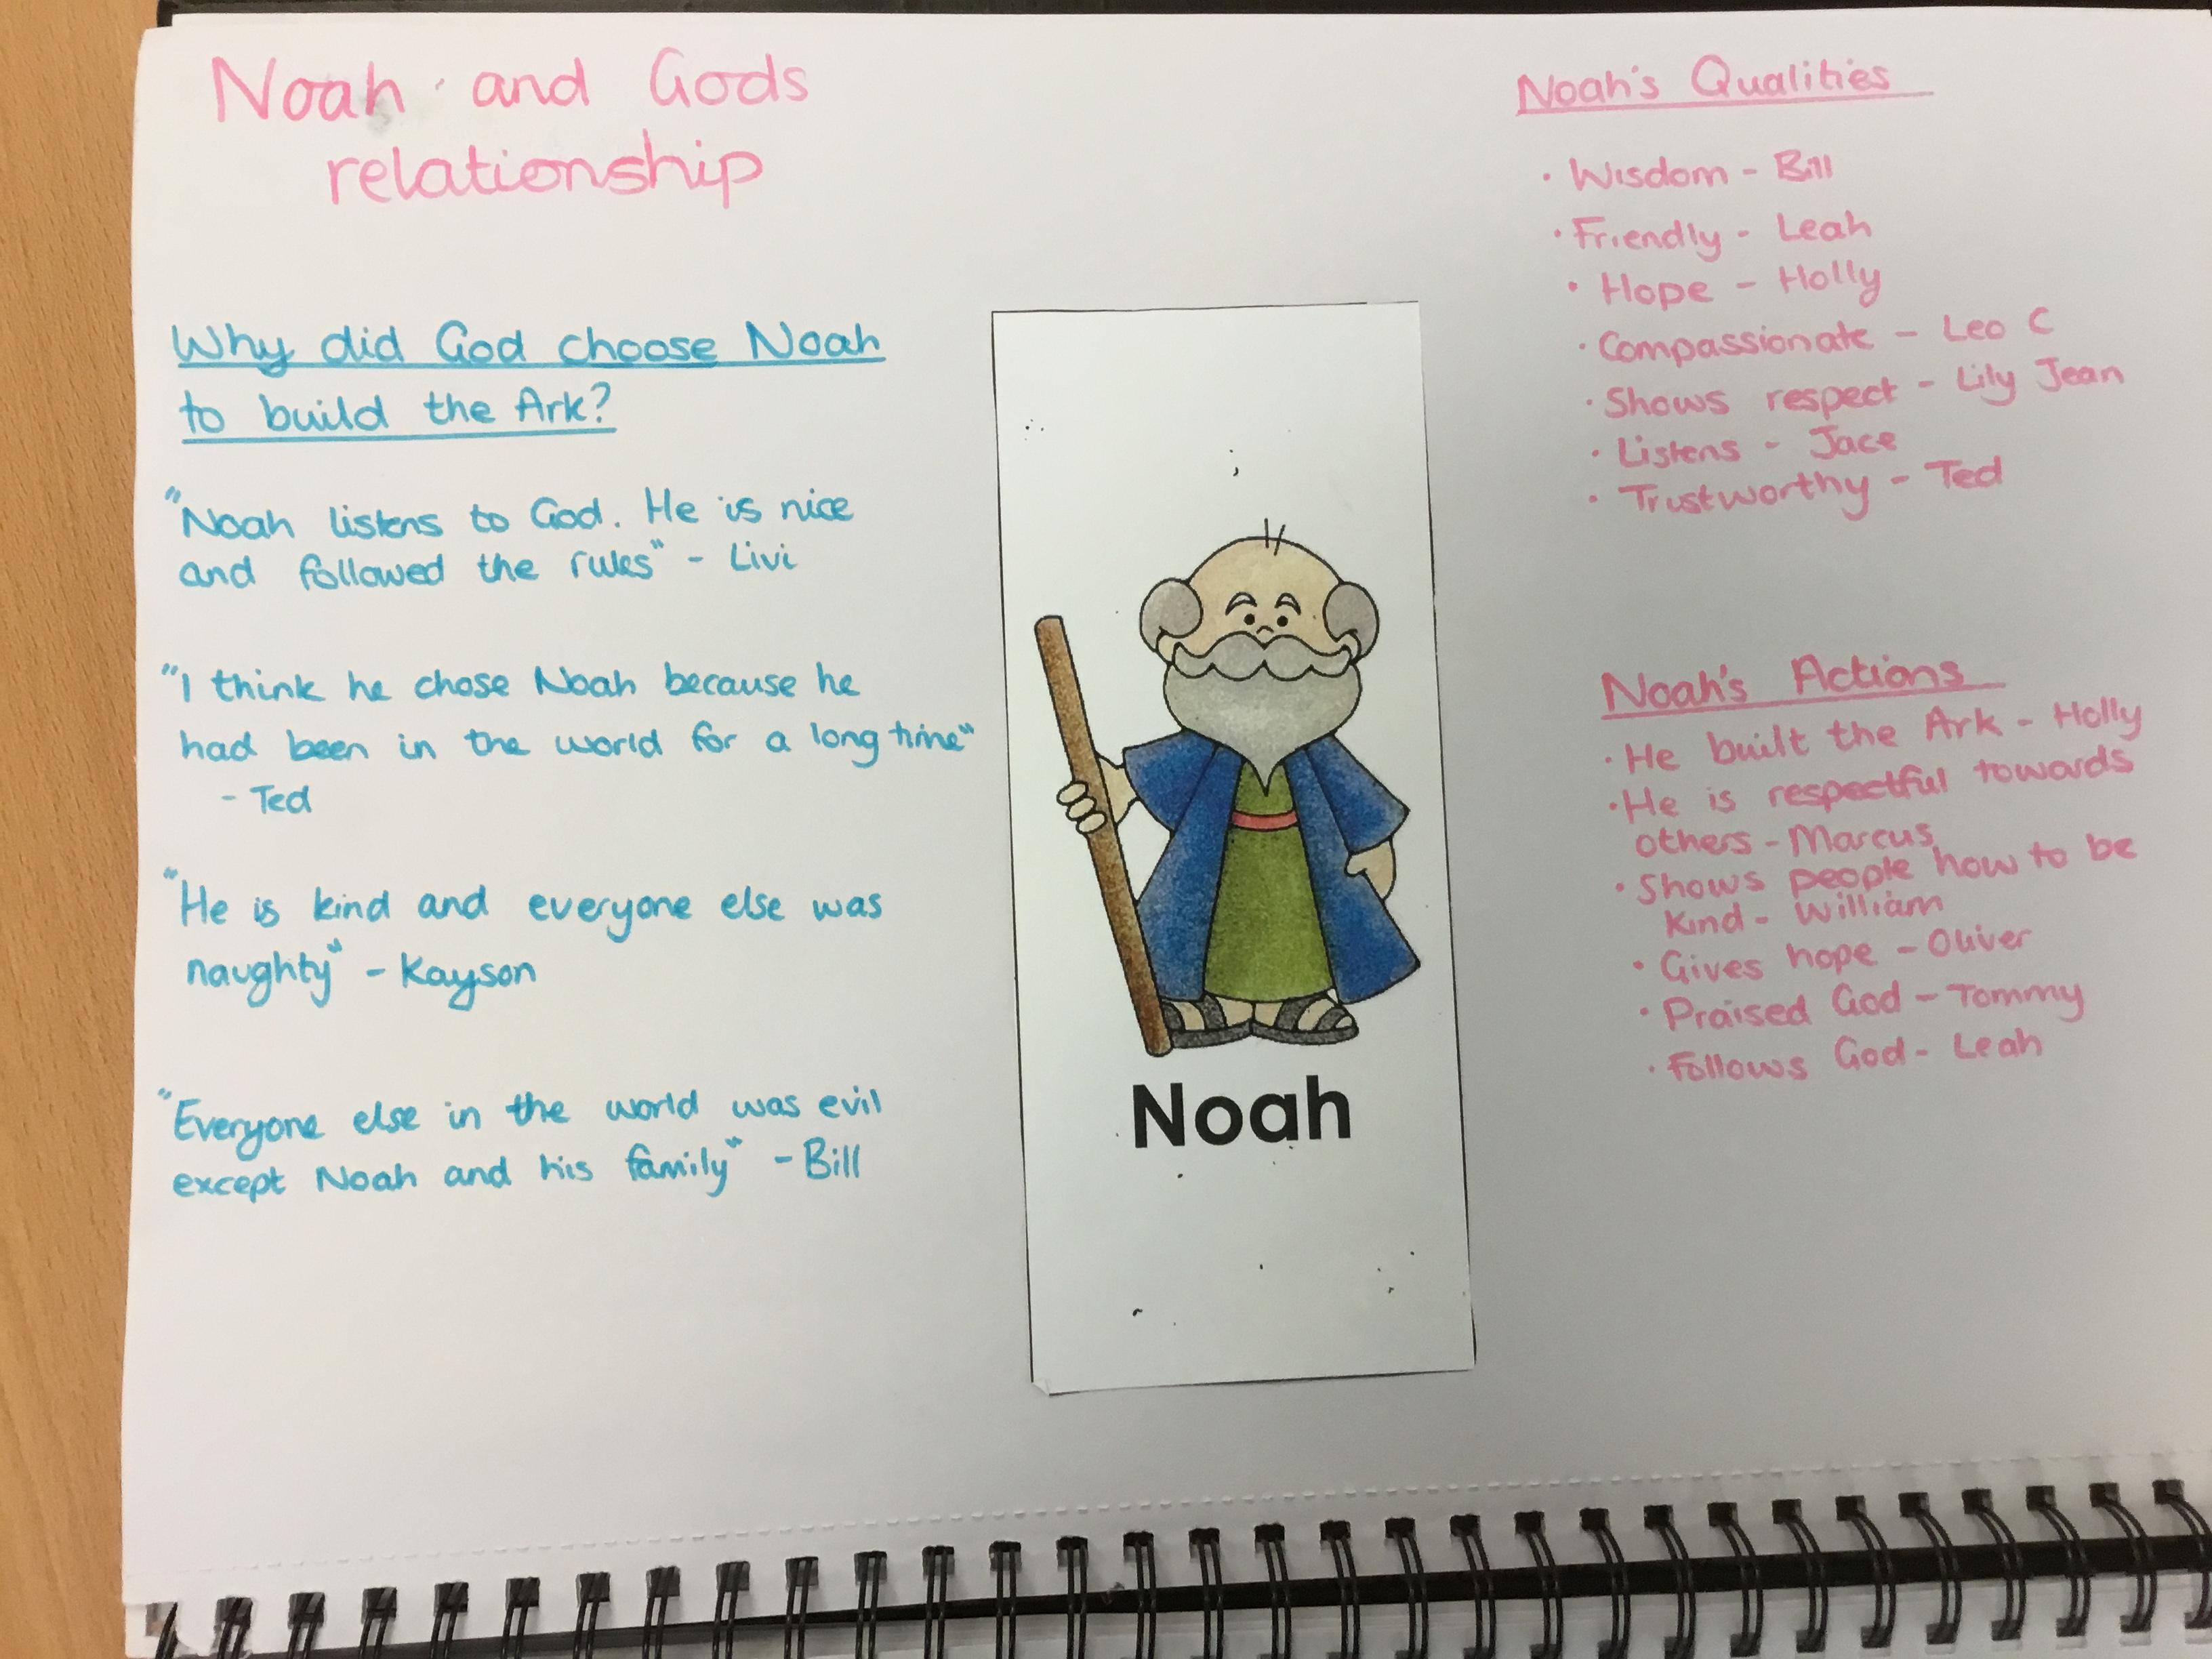 Noah and Gods
relationship
Why did God choose Noah
to build the Ark?
"Noah listens to God. He is nice
and followed the rules" - Livi
"I think he chose Noah because he
had been in the world for a long time"
- Ted
"He is kind and everyone else was
naughty" - Kayson
"Everyone else in the world was evil
except Noah and his family" - Bill
Noah
Noah's Qualities
· Wisdom - Bill
· Friendly - Leah
· Hope - Holly
· Compassionate - Leo C
· Shows respect - Lily Jean
· Listens - Jace
· Trustworthy - Ted
Noah's Actions
· He built the Ark - Holly
· He is respectful towards
others - Marcus
· Shows people how to be
kind - William
· Gives hope - Oliver
· Praised God - Tommy
· Follows God - Leah